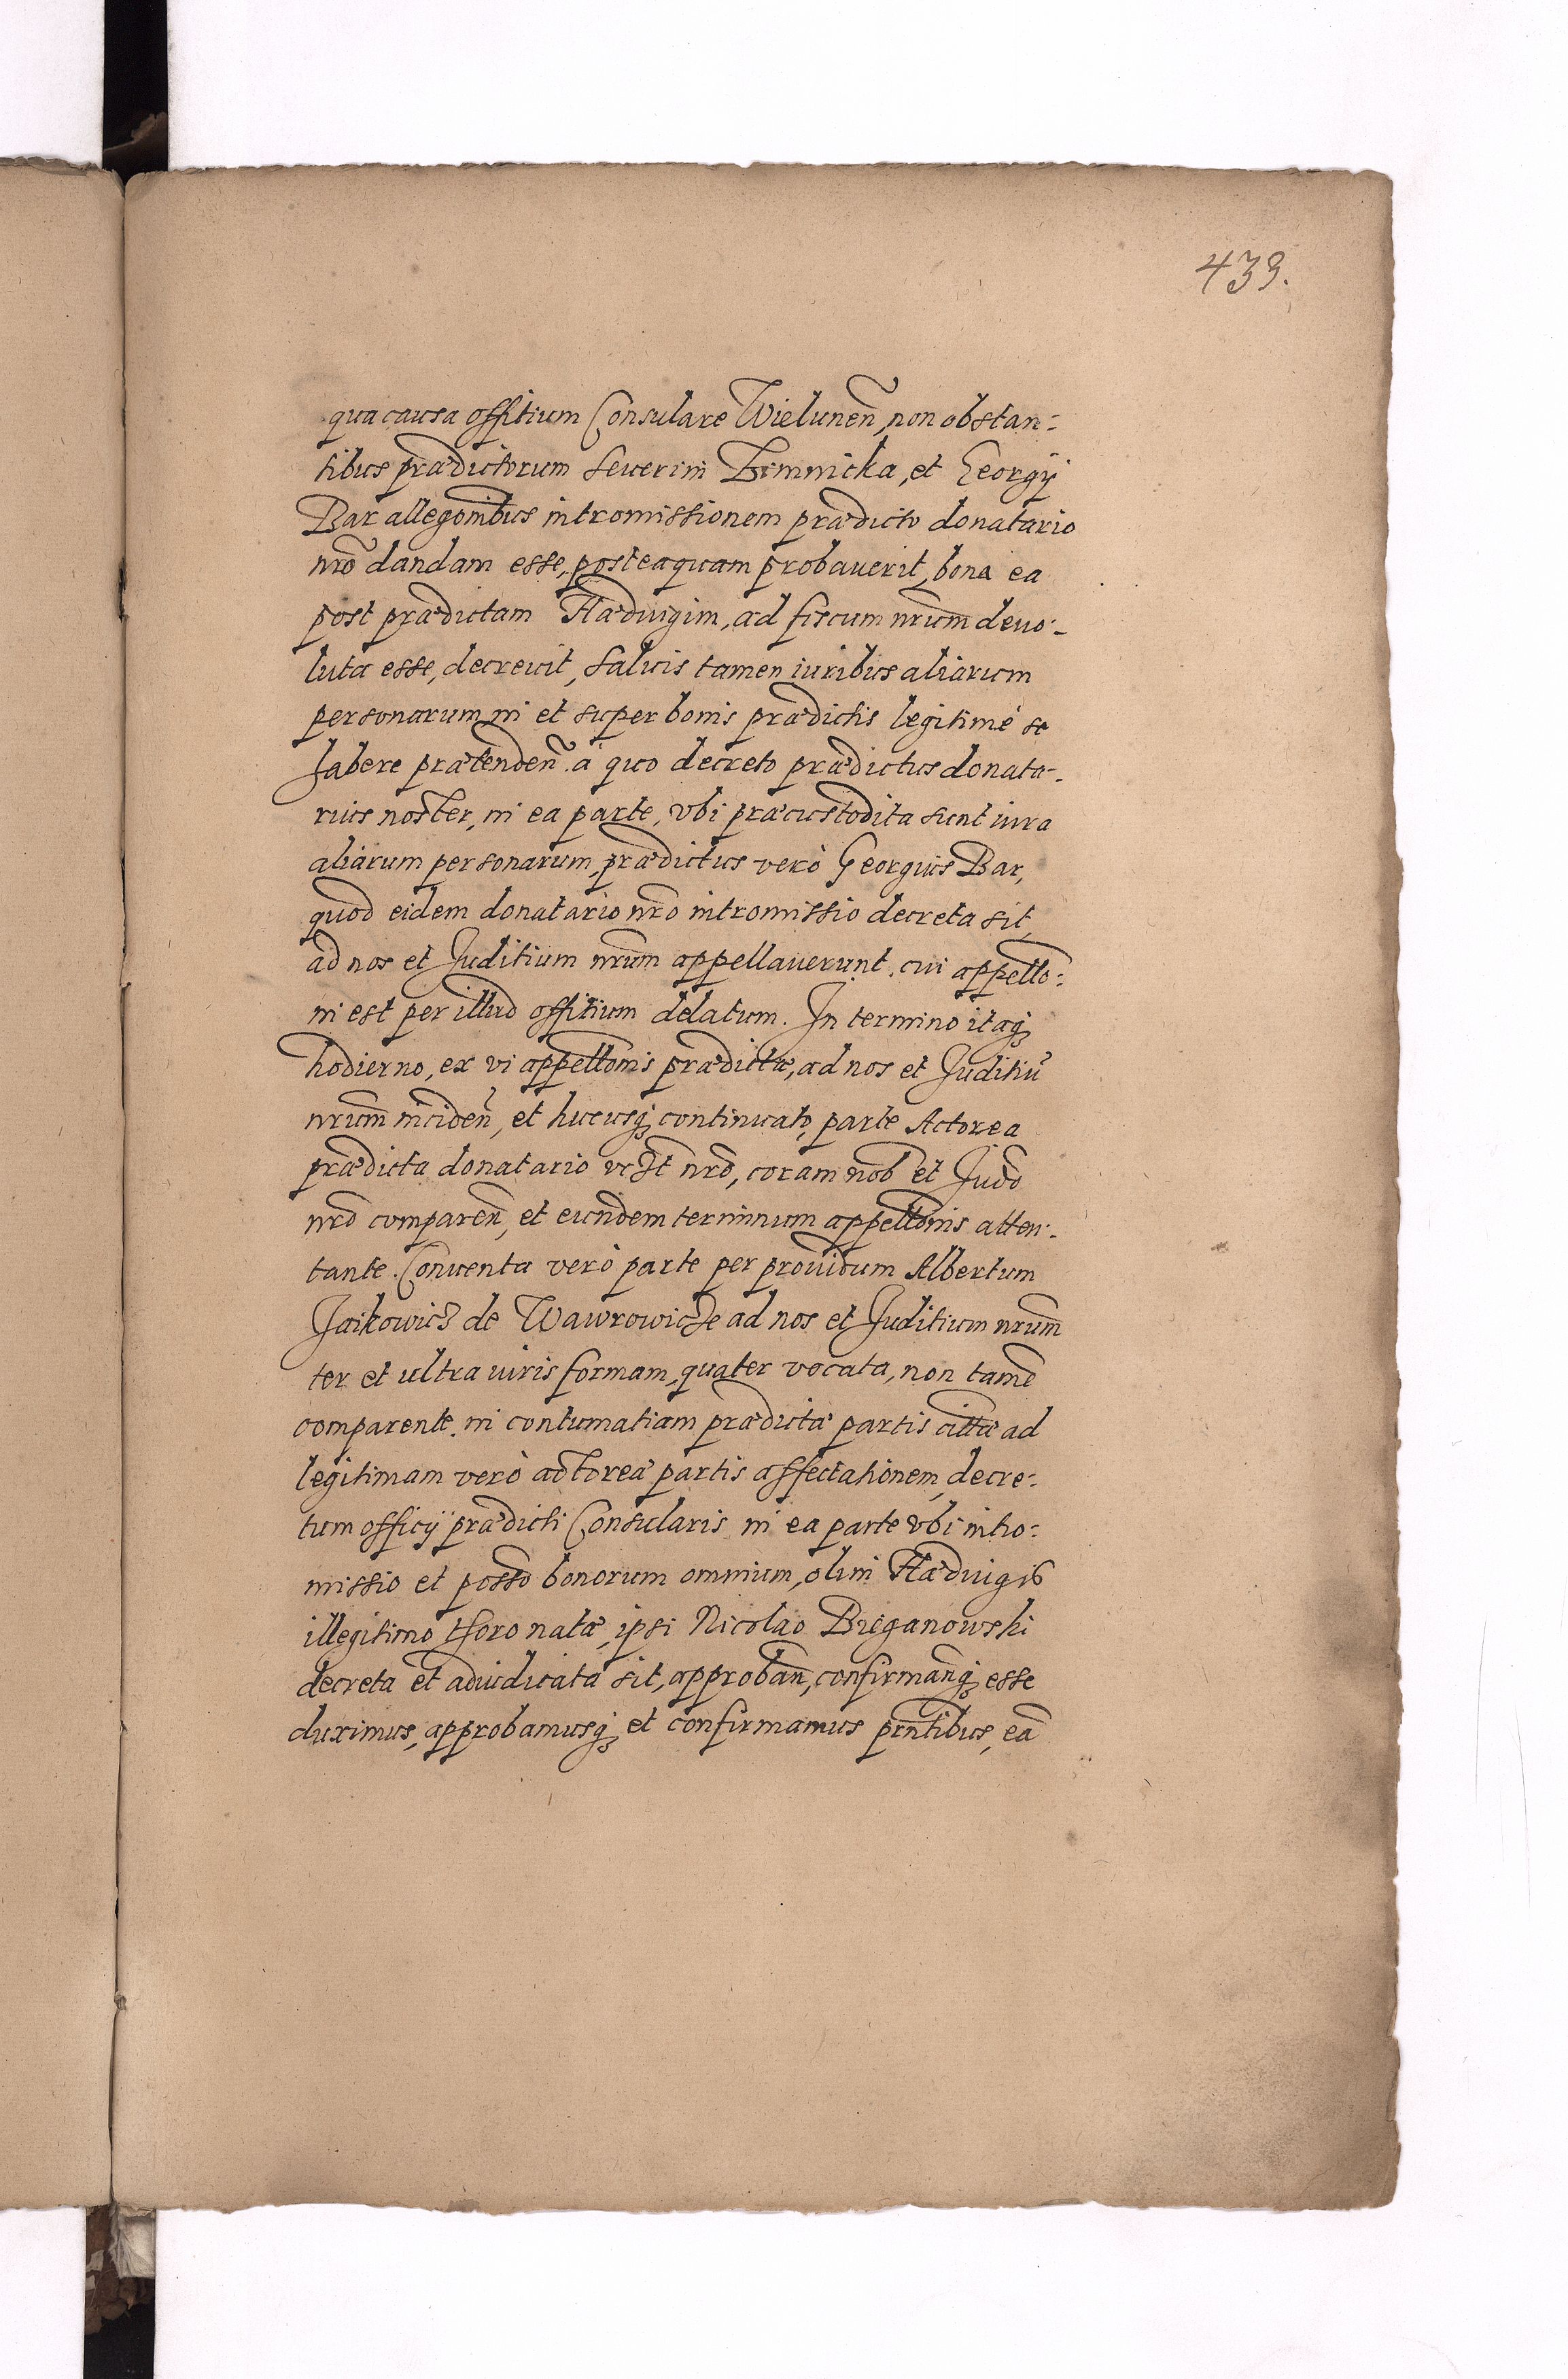 439.
qua causa offitium Consulare Wielunen̄, non obstan=
tibus prædictorum Seuerini Zimnicka, et Georgij
Bar allegōnibus intromissionem prædicto donatario
nr̄o dandam esse, posteaquam probauerit, bona ea
post prædictam Hæduigim, ad fiscum nr̄um deuo-
luta esse, decreuit, Saluis tamen iuribus aliarum
personarum in et super bonis prædictis legitimè se
habere prætenden̄. à quo decreto prædictus donata-
rius noster, in ea parte, vbi præcustodita sunt iura
aliarum personarum, prædictus verò Georgius Bar,
quod eidem donatario nr̄o intromissio decreta sit,
ad nos et Juditium nr̄um appellauerunt, cui appellō=
ni est per illud offitium delatum. In termino itaq₃
hodierno, ex vi appellōnis prædictæ, ad nos et Juditiū
nr̄um inciden̄, et hucusq₃ continuato, parte Actorea
prædicta donatario nr̄o, coram nob̄ et Jud̄o
nr̄o comparen̄, et eundem terminum appellōnis atten-
tante. Conuenta verò parte per prouidum Albertum
Jaikowicz de Wawrowicze ad nos et Juditium nr̄um
ter et ultra iuris formam, quater vocata, non tamē
comparente. in contumatiam prædictæ partis citatæ ad
legitimam verò actoreæ partis affectationem, decre=
tum officij prædicti Consularis in ea parte vbi intro=
missio et poss̄o bonorum omnium, olim Hæduigis
illegitimo thoro natæ, ipsi Nicolao Bieganowski
decreta et adiudicata sit, approban̄, confirman̄q₃ esse
duximus, approbamusq₃ et confirmamus pr̄ntibus, eā